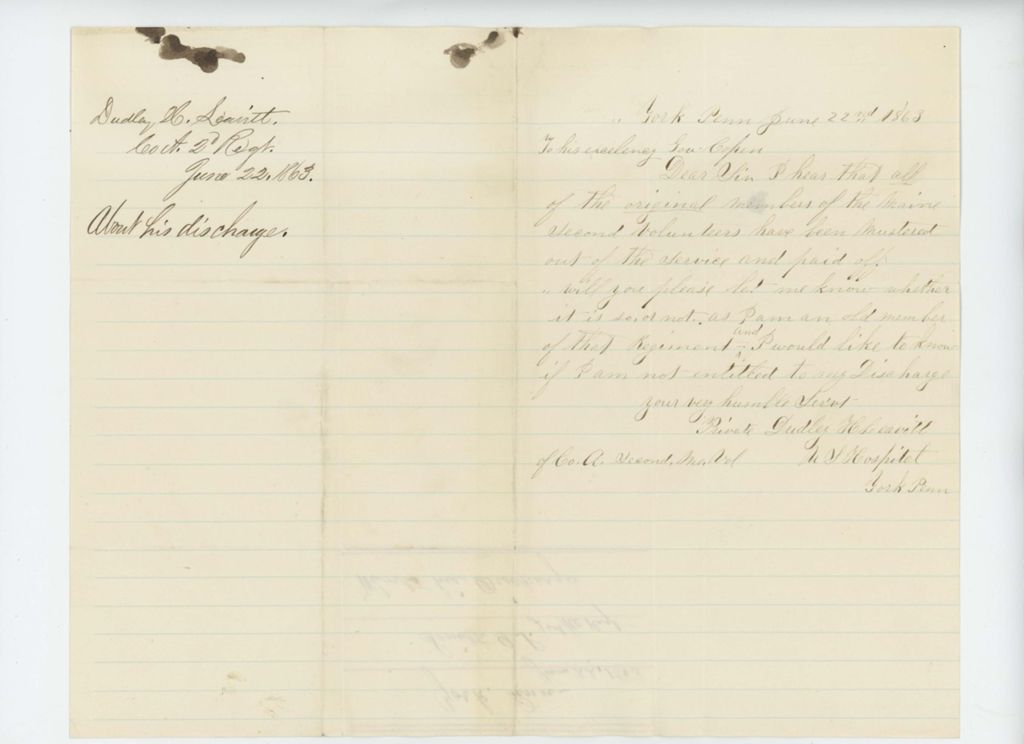 Dudley H. Leavitt.
Co A. 2d Regt.
June 22. 1863.
About his discharge.
York Penn June 22nd 1863
To his excelency Gov Coben
Dear Sir I hear that all
of the original members of the Maine
Second Volunteers have been Mustered
out of the Service and paid off
will you please let me know whether
it is so. or not. as I am an old member
of that Regiment and I would like to know
if I am not entitled to my Discharge
your very humble Servt
Private Dudley H Leavitt
of Co. A. Second. Me. Vol U S Hospital
York Penn